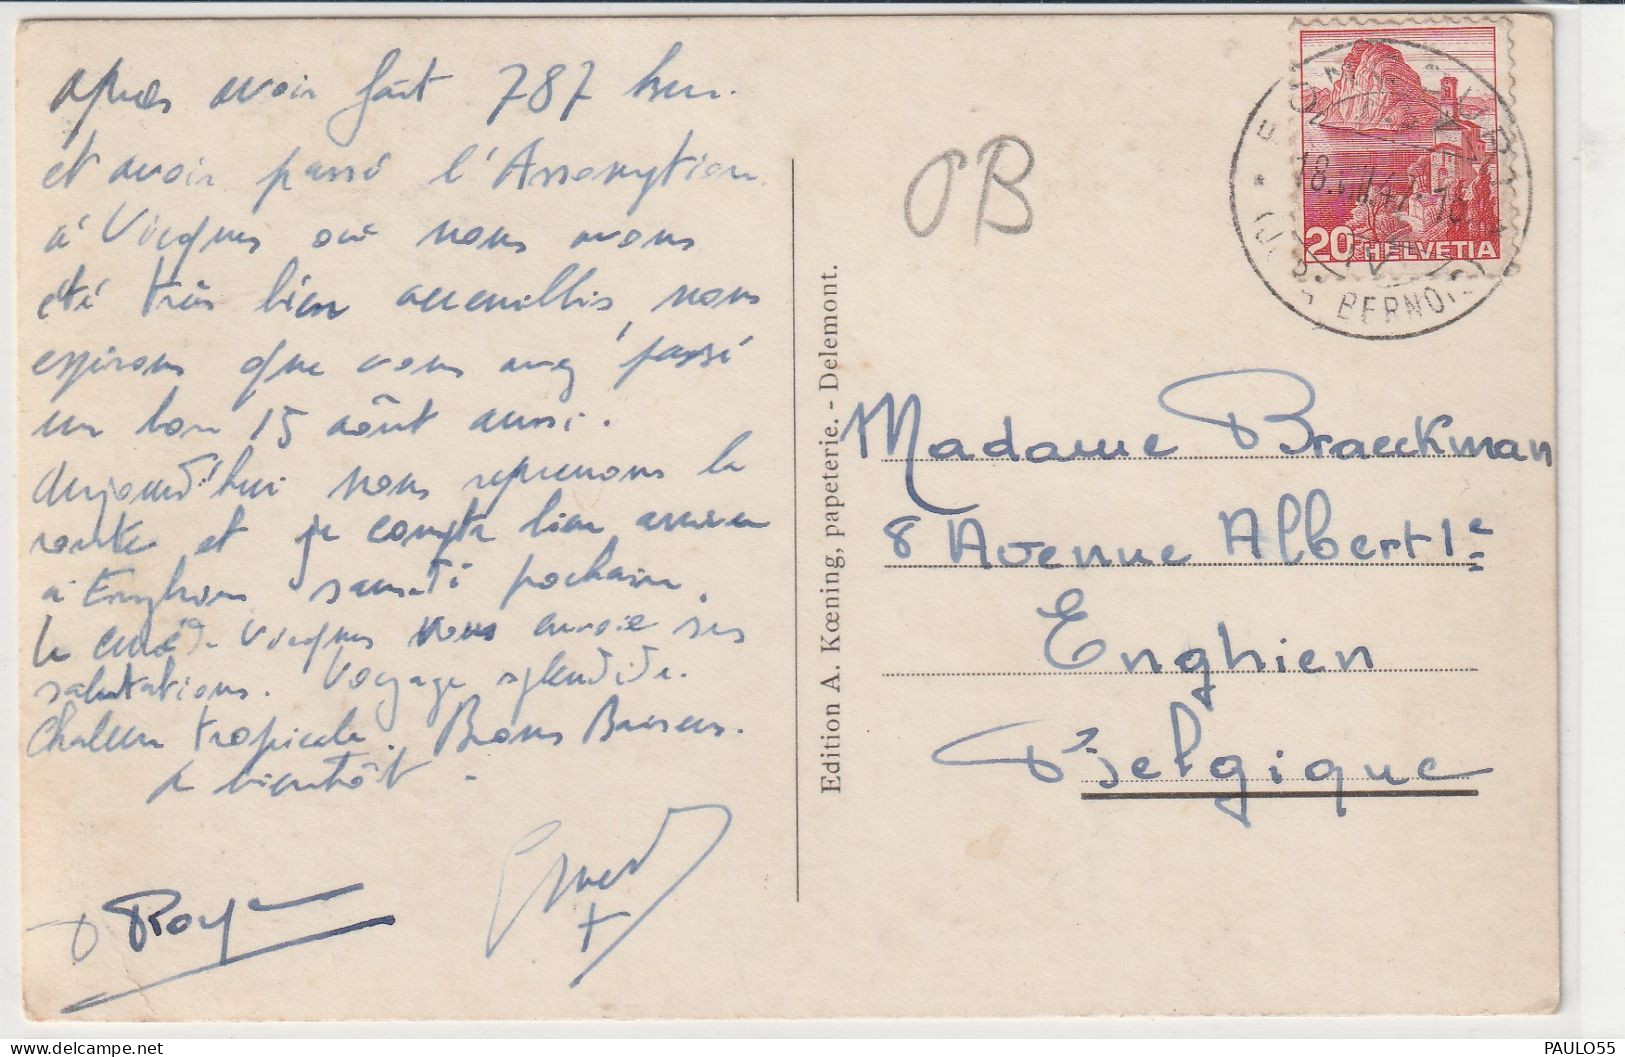 après avoir fait 787 km.
et avoir passé l'Assomption
à Vicques où nous avons
été très bien accueillis, nous
espérons que vous avez passé
un bon 15 août aussi.
Aujourd'hui nous reprenons la
route et je compte bien arriver
à Enghien samedi prochain.
le curé de Vicques vous envoie ses
salutations. Voyage splendide.
Chaleur tropicale. Bons Baisers.
A bientôt.
OB
Edition A. Kœning, papeterie. - Delemont.
20 HELVETIA
BERNOIS
Madame Braeckman
8 Avenue Albert 1e
Enghien
Belgique
PAULO55